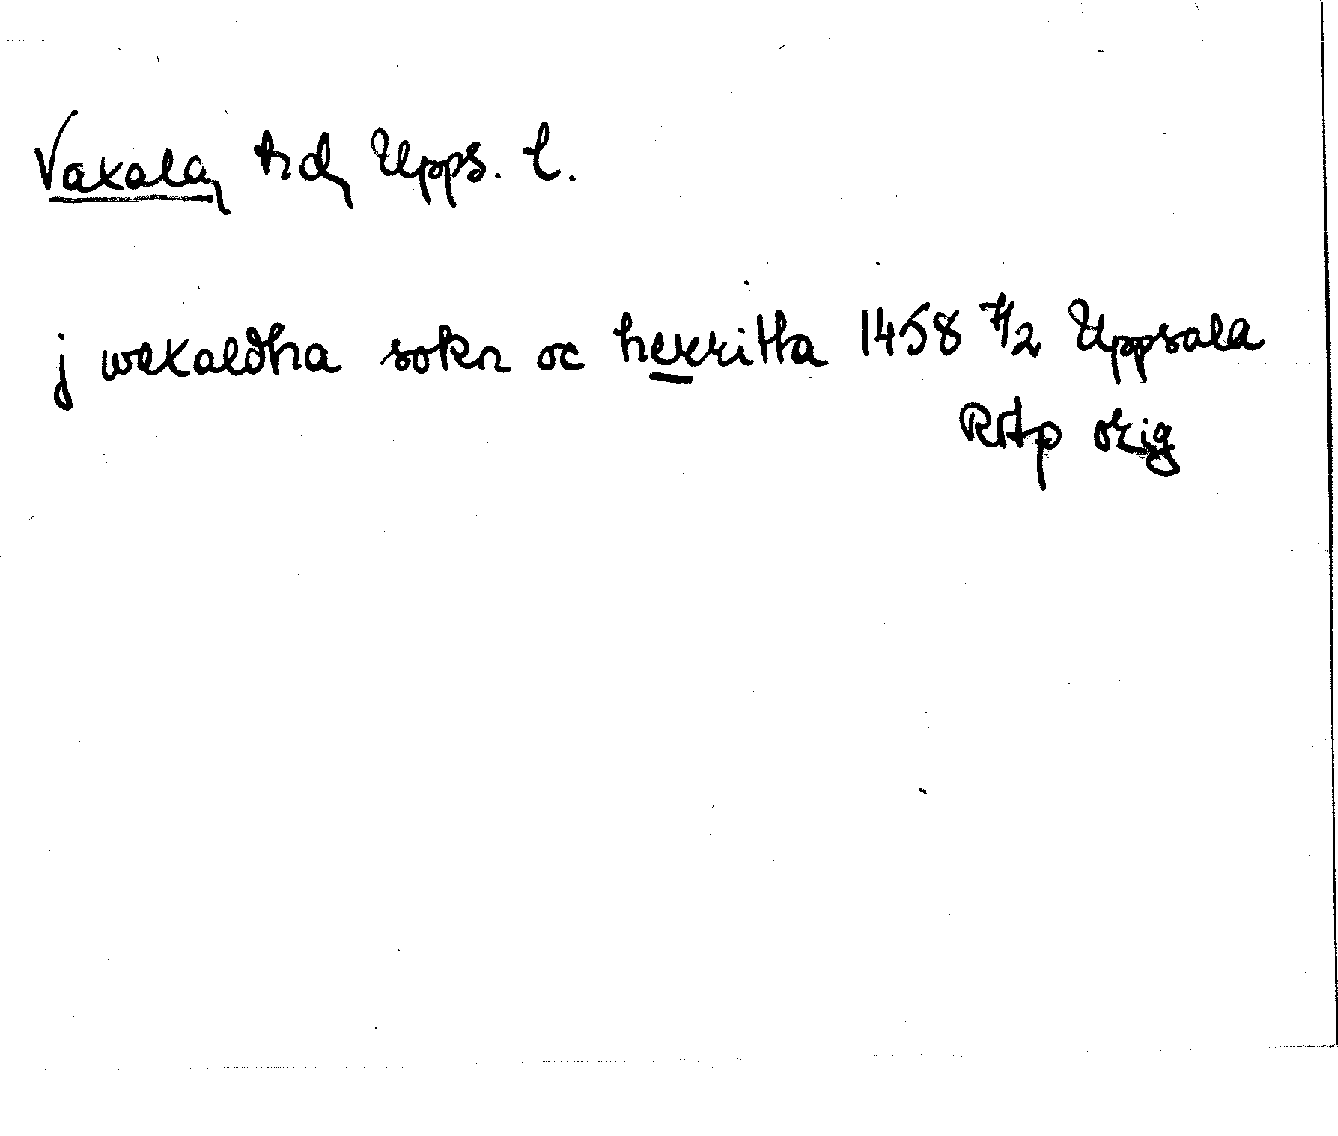 Vaxala, hd, Upps. l.
j waxaldha sokn oc herritha 1458 7/2 Uppsala
RAp orig